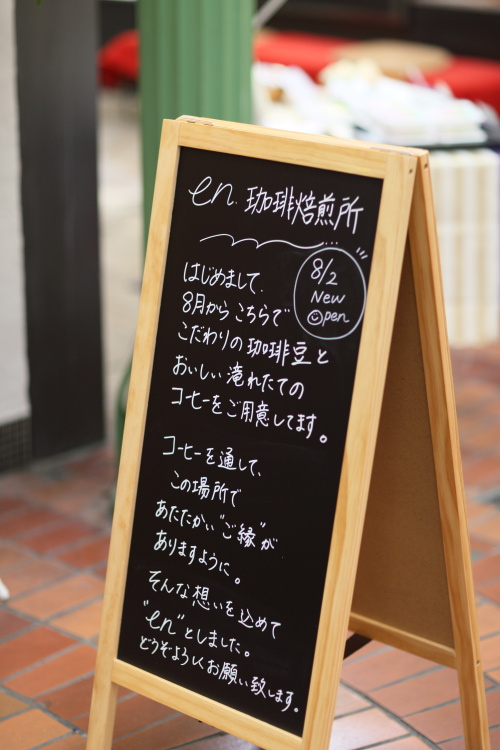 en. 珈琲焙煎所
8/2
New
Open
はじめまして、
8月から こちらで
こだわりの 珈琲豆と
おいしい 滝れたての
コーヒーをご用意してます。
コーヒーを通して、
この場所で
あたたかい"ご縁"が
ありますように。
そんな想いを込めて
"en"としました。
どうぞよろしくお願い致します。